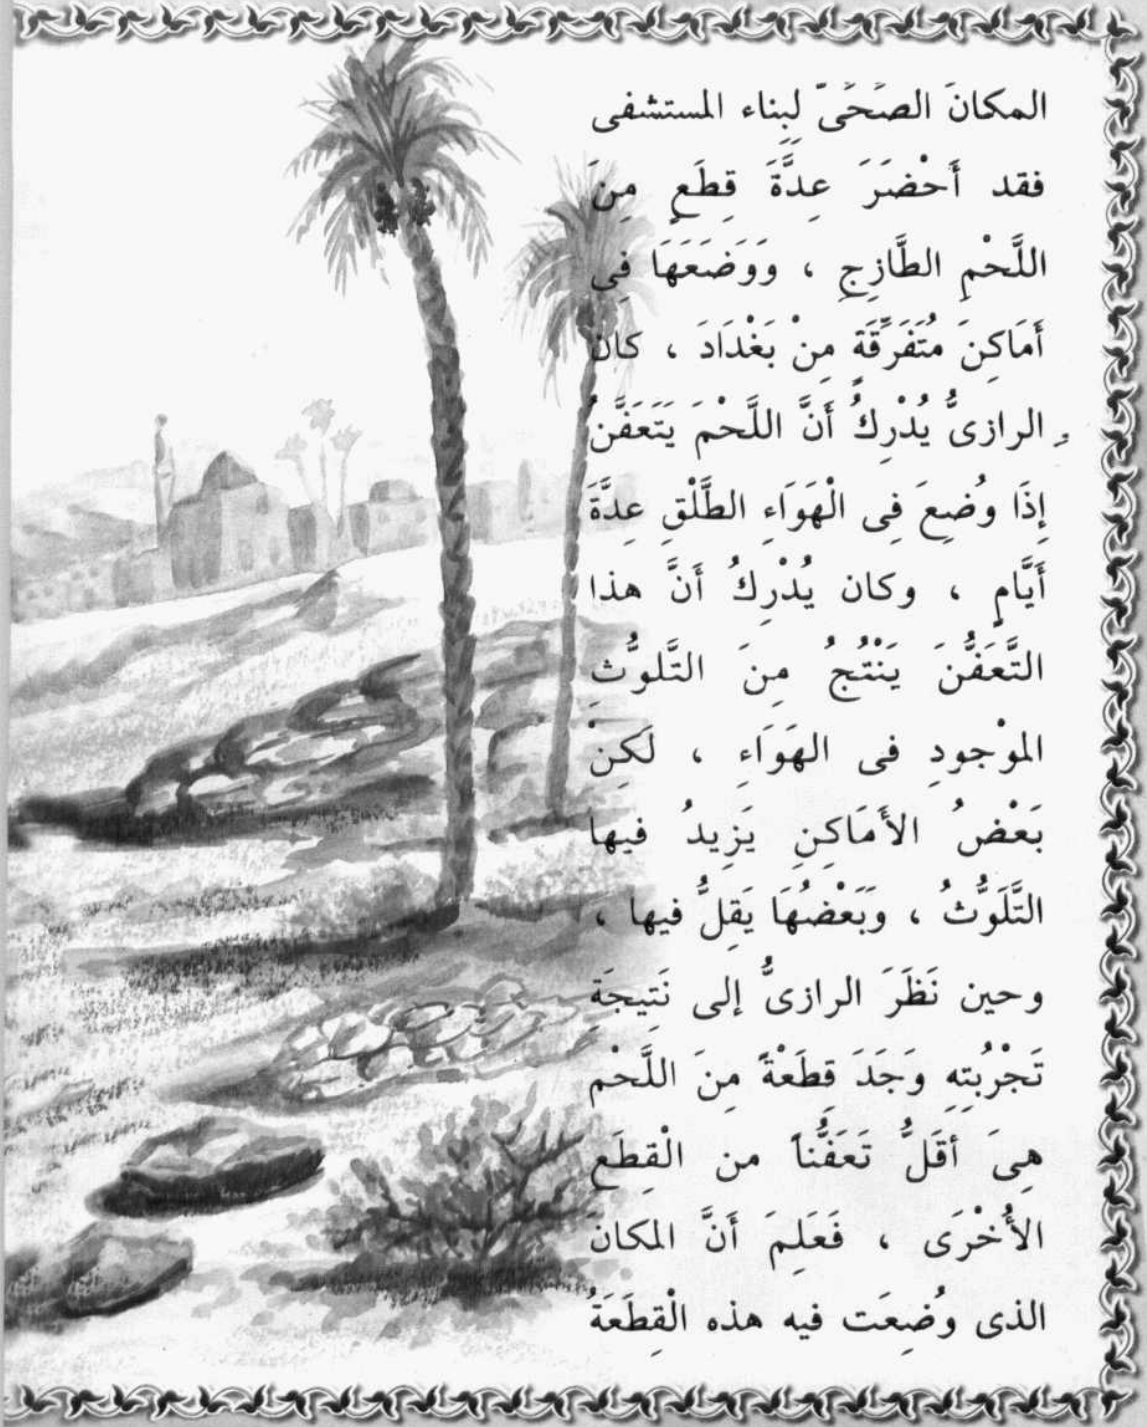 المكانَ الصَحَىّ لِبِناء المستشفى
فقد أَحْضَرَ عِدَّةَ قِطَعٍ مِنَ
اللَّحْمِ الطَّازِجِ ، وَوَضَعَهَا فِى
أَمَاكِنَ مُتَفَرِّقَةٍ مِنْ بَغْدَادَ ، كانَ
الرازىُّ يُدْرِكُ أَنَّ اللَّحْمَ يَتَعَفَّنُ
إِذَا وُضِعَ فِى الْهَوَاءِ الطَّلْقِ عِدَّةَ
أَيَّامٍ ، وكان يُدْرِكُ أَنَّ هذا
التَّعَفُّنَ يَنْتُجُ مِنَ التَّلوُّثِ
الموْجودِ فى الهَوَاءِ ، لَكِنْ
بَعْضُ الأَمَاكِنِ يَزِيدُ فيها
التَّلَوُّثُ ، وَبَعْضُهَا يَقِلُّ فيها ،
وحين نَظَرَ الرازىُّ إلى نَتِيجَةِ
تَجْرُبَتِهِ وَجَدَ قِطَعْةً مِنَ اللَّحْمِ
هِىَ أقَلُّ تَعَفُّناً من الْقِطَعِ
الأُخْرَى ، فَعَلِمَ أَنَّ المكانَ
الذى وُضِعَت فيه هذه الْقِطَعَةُ